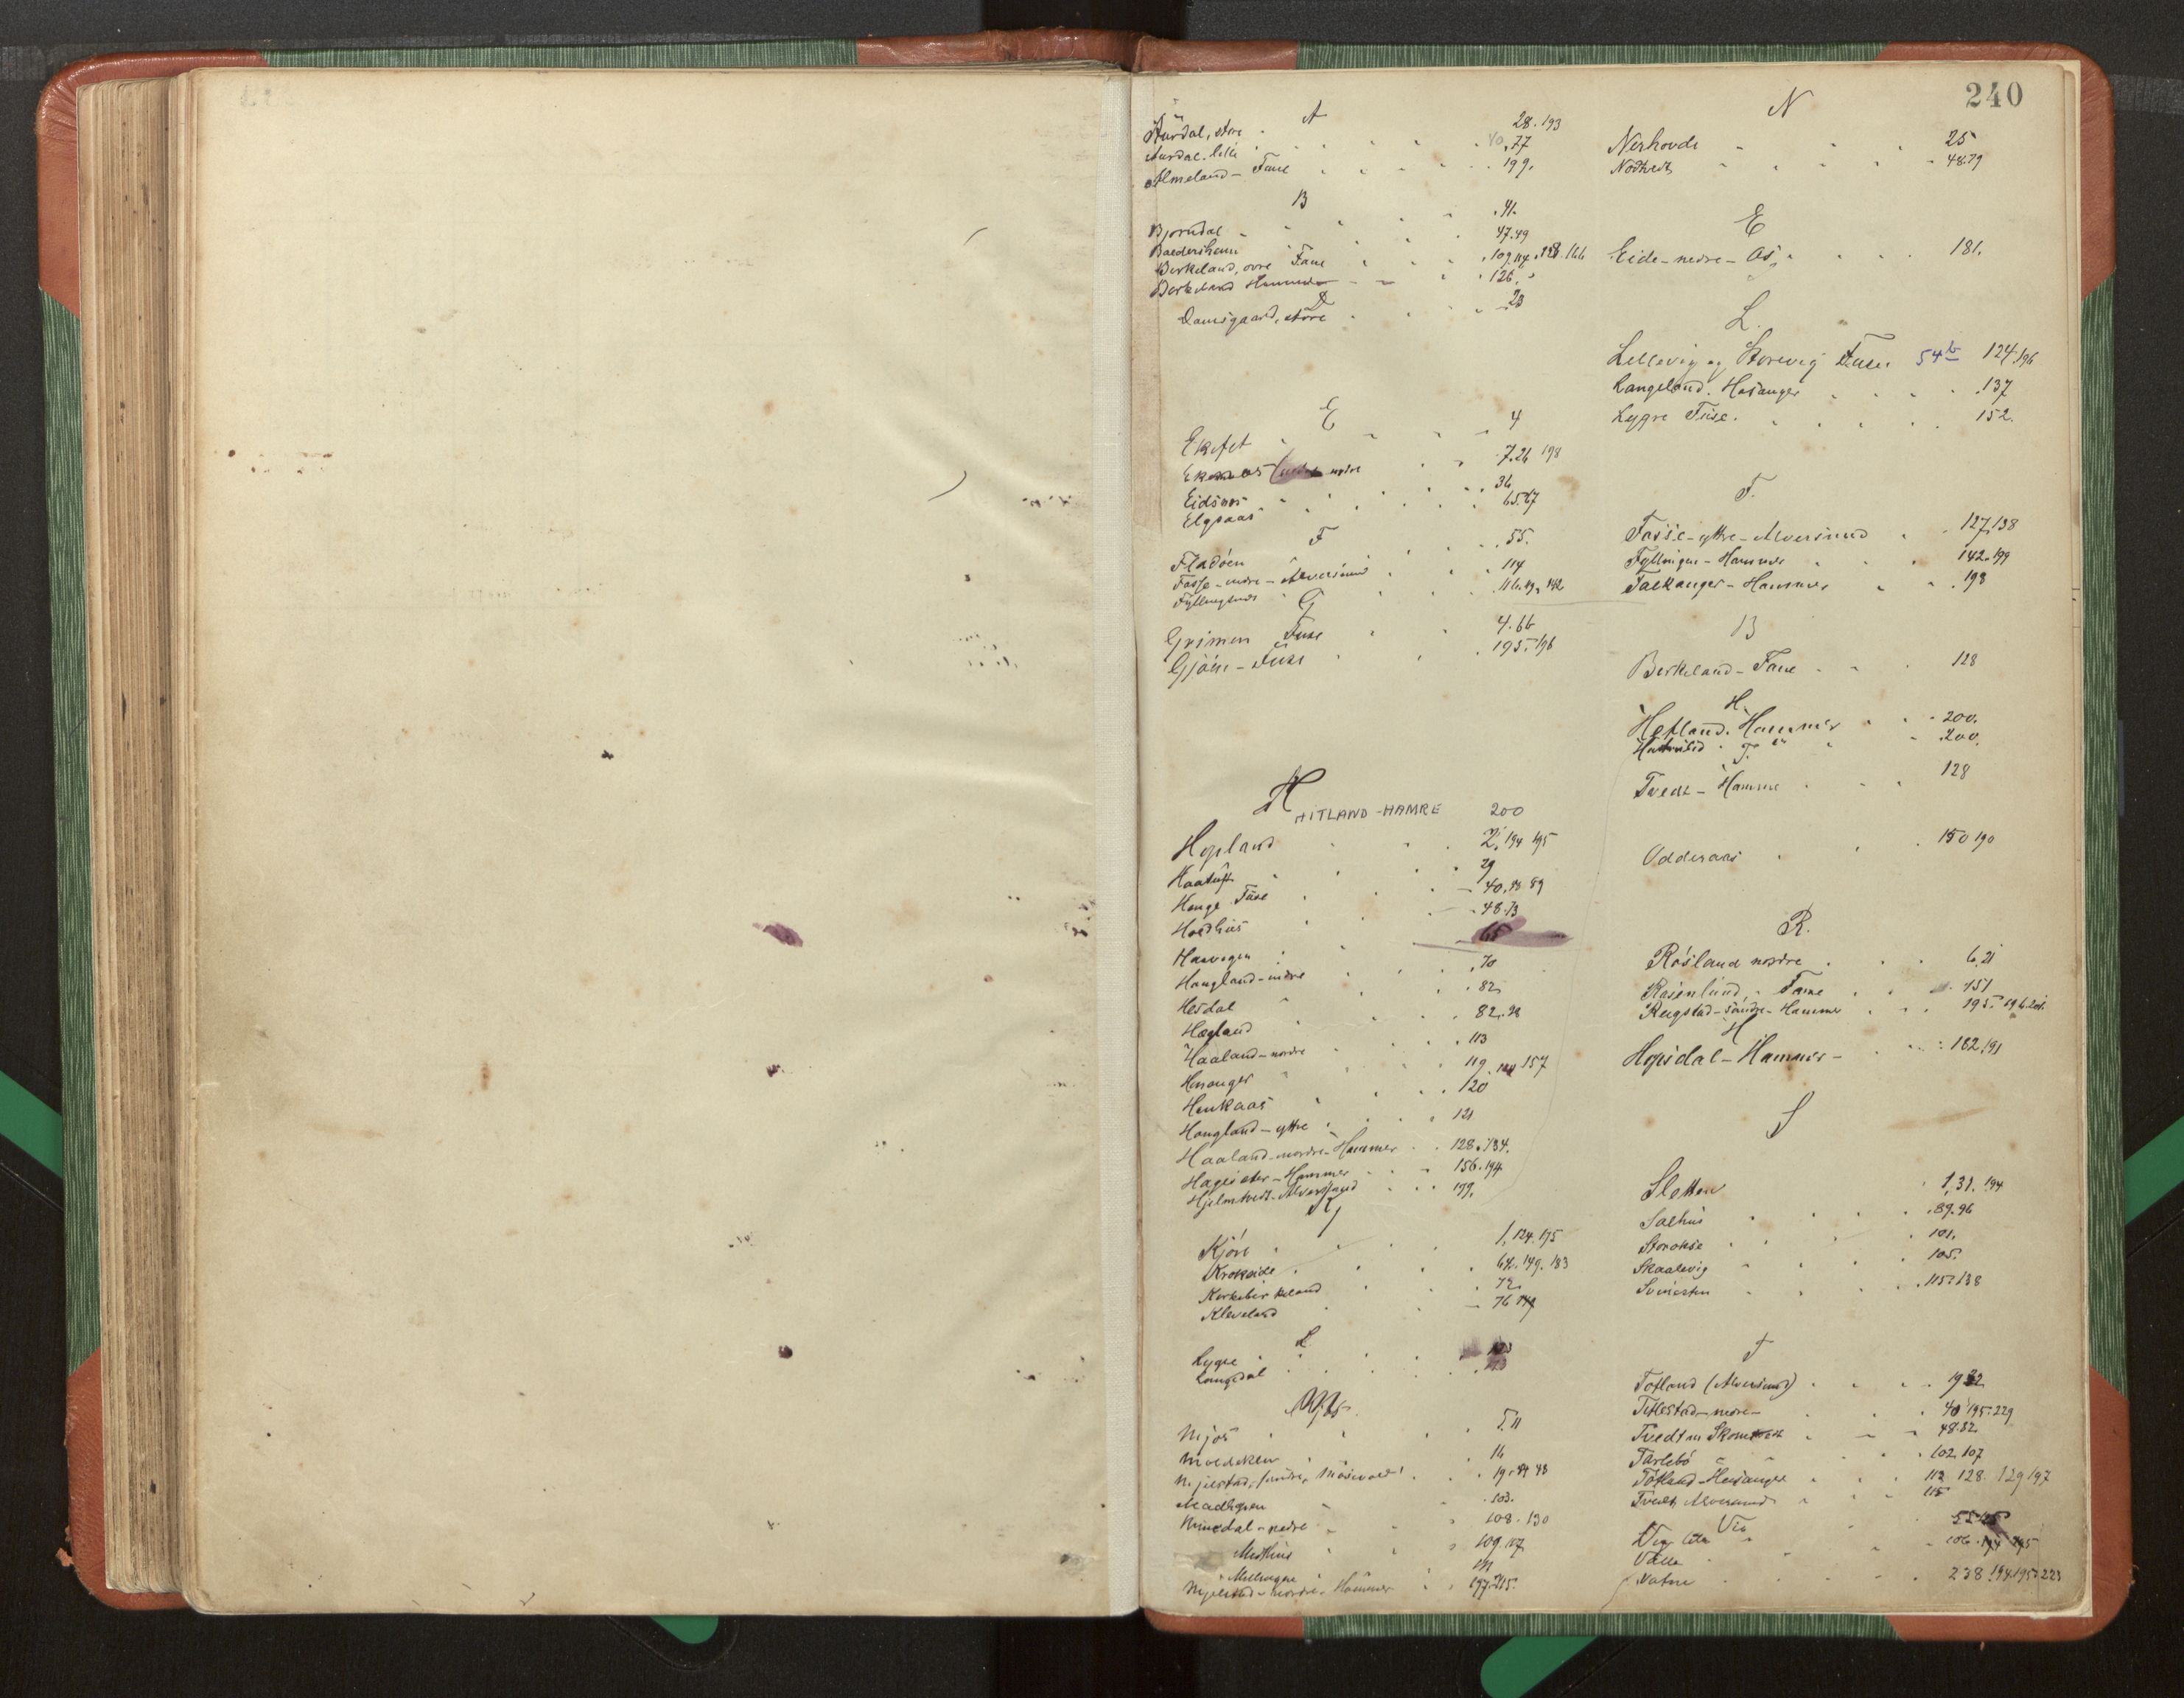 240
A
Aardal, store . 28. 193
Aardal. lille . 40, 77
Almeland - Fane . 199.
B
Bjørndal . 41.
Baedersheim 47. 49
Birkeland, ovre Fane . 109. 114. 128. 166
Birkeland Hammer 126.
D
Damsgaard, store . 23
E
Ekefet . 4
nedre 7. 26 198
Eidsnes 36
Elgsaas 65. 67
F
Fladöen . 55.
Fosse - indre - Alversund . 114
Fyllingsnes . 116.
G
Grimen Fuse . 4. 66
Gjöen - Fuse . 195. 196
H
HITLAND - HAMRE 200
Hopland . 2, 194 195
Haatuft . 29
Hauge Fuse . 40. 89
Hordhus . 48. 73
Haavegen . 65
Haugland - indre . 70
Hesdal . 82
Hægland . 82.
Haaland - nordre . 113
Hosanger . 119. 157
Haukaas . 120
Haugland - yttre . 121
Haaland - nordre - Hammer . 128. 134.
Hageseter - Hammer . 156. 194
Hjelmtvedt - Alversund . 199.
Kjöre . 1, 124. 175
Krokeide . 64. 149. 183
Kirkebirkeland . 72
Kleveland . 76
L
Lygre .
Langedal .
Mjös
Mjös . 5. 11
Moldeklev . 16
Mjelstad, søndre, 19.
Madlgren . 103.
Mundal - nedre 108. 130
Midthus 109. 117
Mellingen
Mjelstad - nordre - Hammer . 197. 215.
N
Nerhovde 25
Nodtvedt 48. 79
E
Eide - nedre - Os . 181.
L.
Lillevig og Storevig Fuse 54b 124. 196
Langeland. Hosanger . 137
Lygre Fuse. . 152.
F.
Fosse - yttre - Alversund . 127. 138
Fyllingen - Hammer 142. 199
Falkanger - Hammer . 198
B
Birkeland - Fane . 128
H.
Hetland. Hammer . 200.
. 200.
Tvedt - Hammer . 128
Odderaas . 150 190
R.
Rösland nordre . 6. 21
Rosenlund - Fane . 151
Reigstad - söndre - Hammer . 195. 196.
H
Hopsdal - Hammer - . 182. 191
S
Sletten 1, 31. 194
Salhus . 89. 96
Storokse . 101.
Skaalevig . 105.
Svinesten . 115. 138
T
Tofland (Alversund) . 19
Titlestad - nedre - 40 195. 229
Tvedt 48. 82
Tarlebö . 102. 107
Tofland - Hosanger . 112 128. 129 197
Tvedt, Alversund 115
Vig
Vig lille
Valle 106.
Vatne . 238. 194. 195. 223